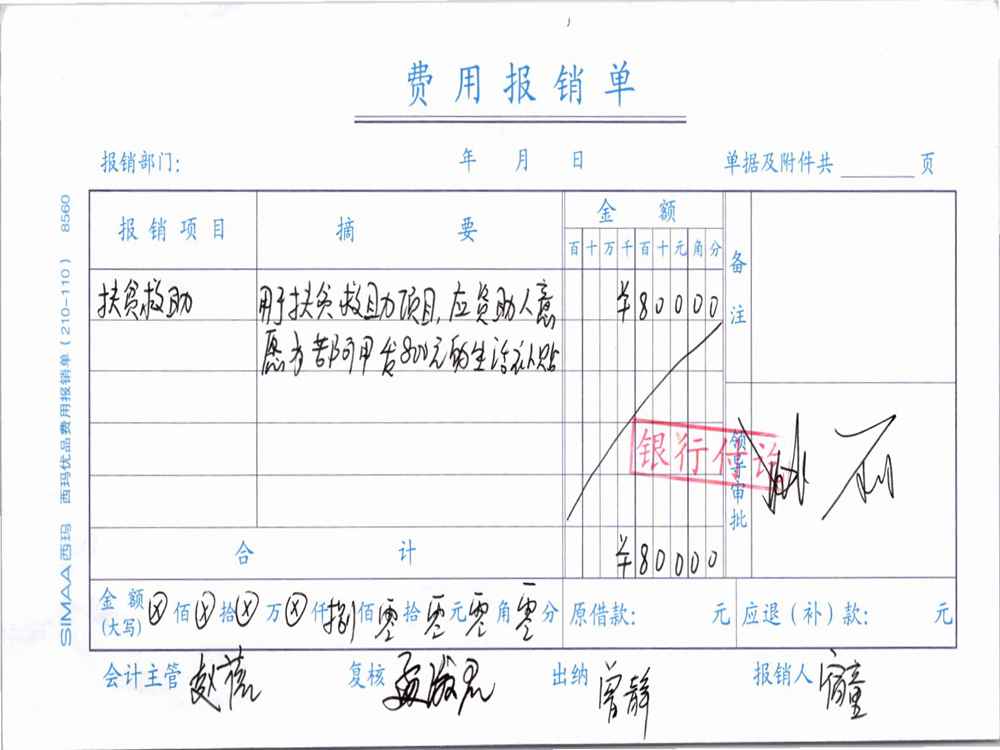 费用报销单
报销部门: 年 月 日 单据及附件共 页
报销项目 摘要 金额 备注
百 十 万 千 百 十 元 角 分
扶贫救助 用于扶贫救助项目,应资助人意 ¥80000
愿为 800元的生活补贴
银行付讫
领导审批
合计 ¥80000
金额(大写) ⊗佰⊗拾⊗万⊗仟捌佰零拾零元零角零分 原借款: 元 应退(补)款: 元
会计主管 赵蓓 复核 出纳 曾静 报销人
SIMAA西玛 西玛优品费用报销单(210-110) 8560